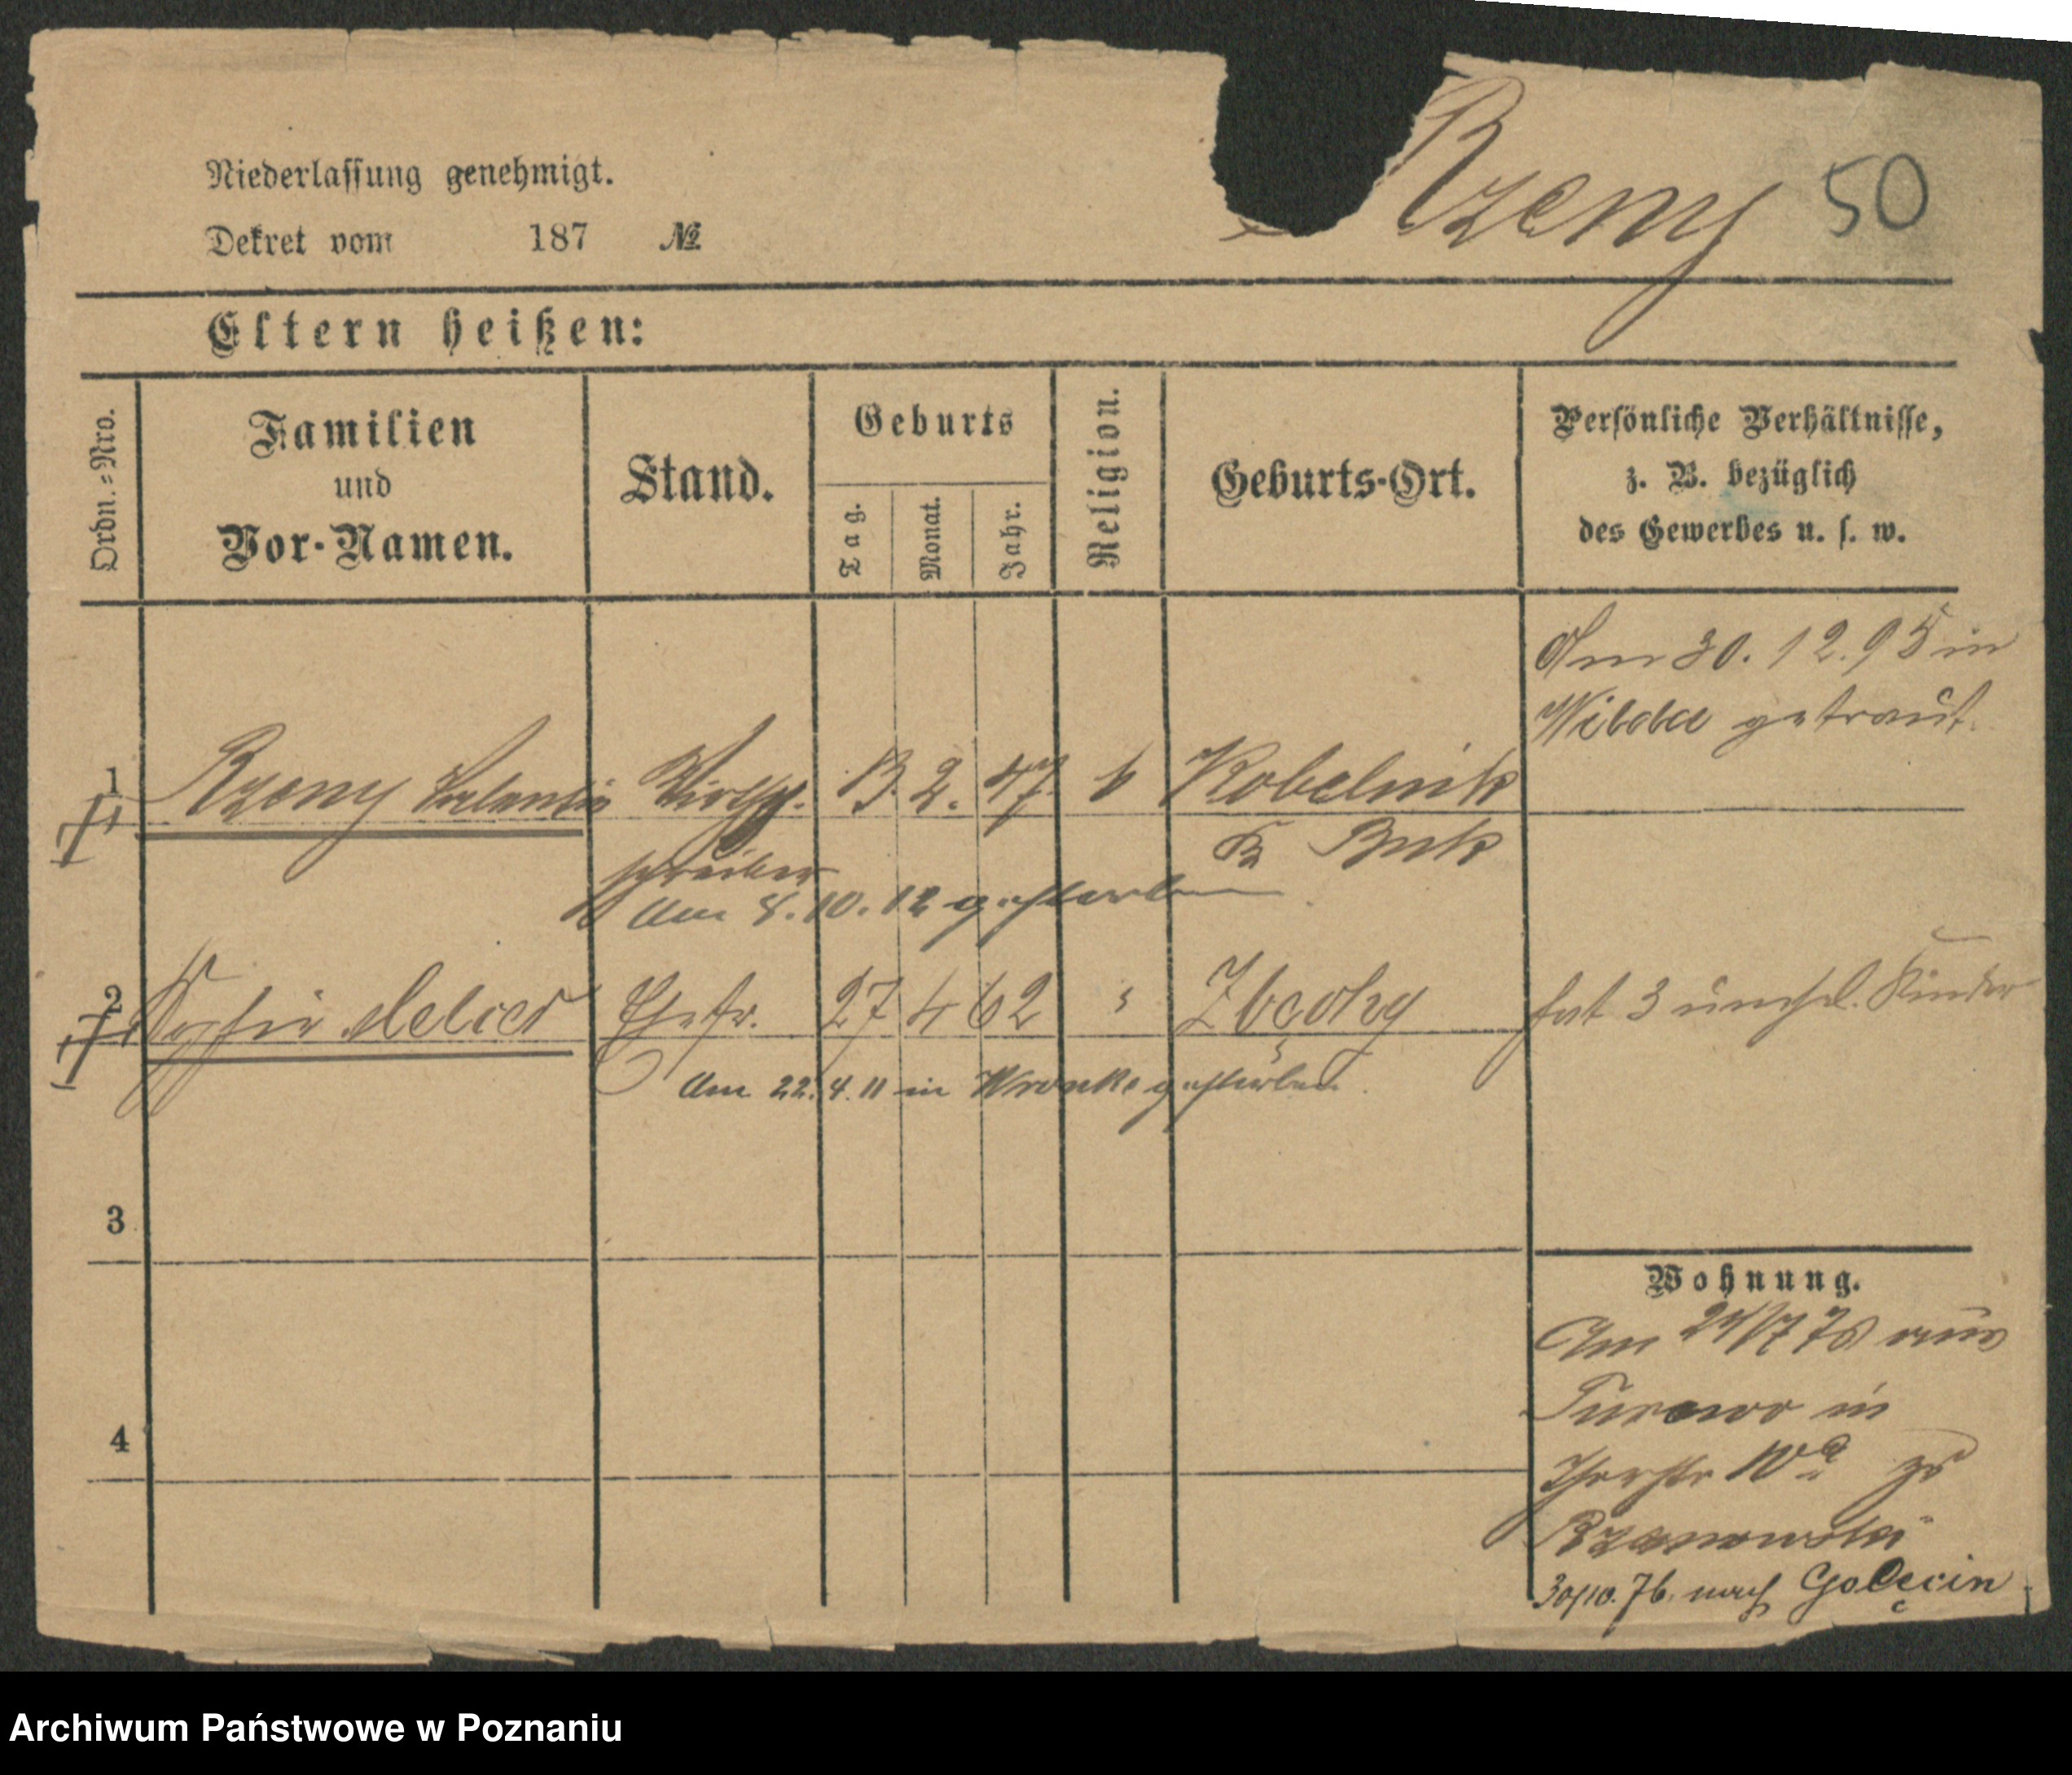 Niederlassung genehmigt.
Rzeny 50
Dekret vom 187 №
Eltern heißen:
Ordn.=Nro.
Familien
und
Vor-Namen.
Stand.
Geburts
Tag.
Monat.
Jahr.
Religion.
Geburts-Ort.
Persönliche Verhältnisse,
z. B. bezüglich
des Gewerbes u. s. w.
Am 30. 12. 95 in
Wilda getraut.
1 Rzeny Valentin Wirthsch. 13. 2. 47. k Kobelnik
schreiber
Kr Buk
Am 8. 10. 12 gestorben
2 Ehefr. 27 4 62 Zbąchy hat 3 unehel. Kinder
Am 22. 4. 11 in Wronke gestorben.
3
Wohnung.
Am 24/7 76 aus
Turowo in
4
10a zu
30/10. 76. nach Golęcin
Archiwum Państwowe w Poznaniu